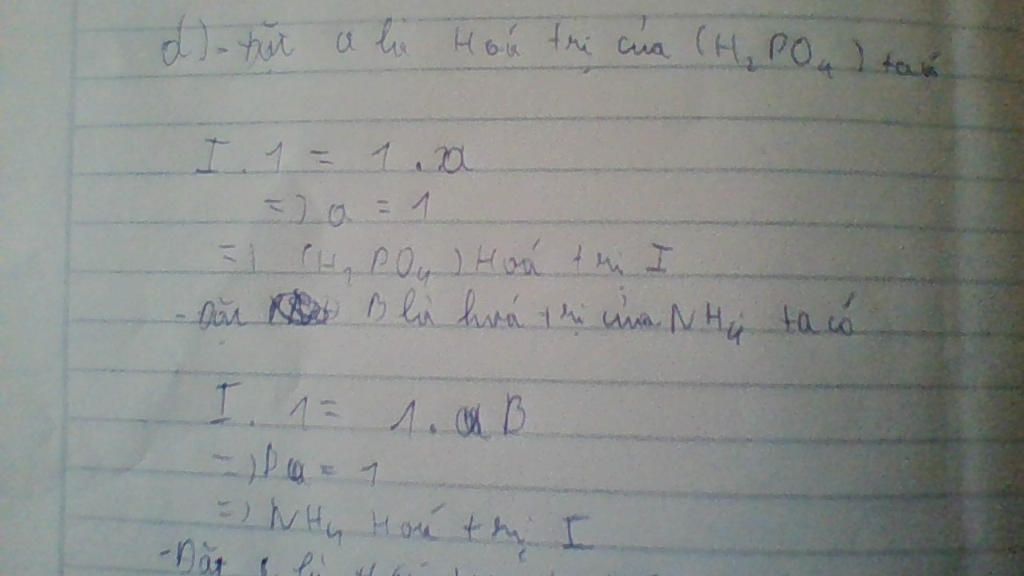 d) - Đặt a là Hoá trị của (H₂PO₄) ta có
I . 1 = 1 . a
=) a = 1
=) (H₂PO₄) Hoá trị I
- Đặt B là hoá trị của NH₄ ta có
I . 1 = 1 . B
=) B = 1
=) NH₄ Hoá trị I
- Đặt là Hoá